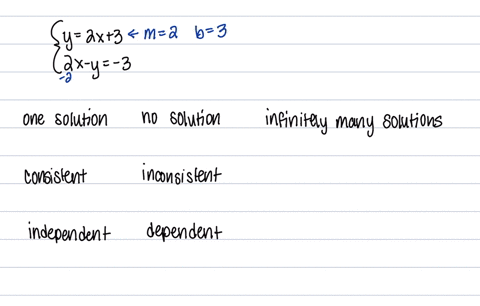 y = 2x+3 ← m=2 b=3
2x-y=-3
-2
one solution no solution infinitely many solutions
consistent inconsistent
independent dependent